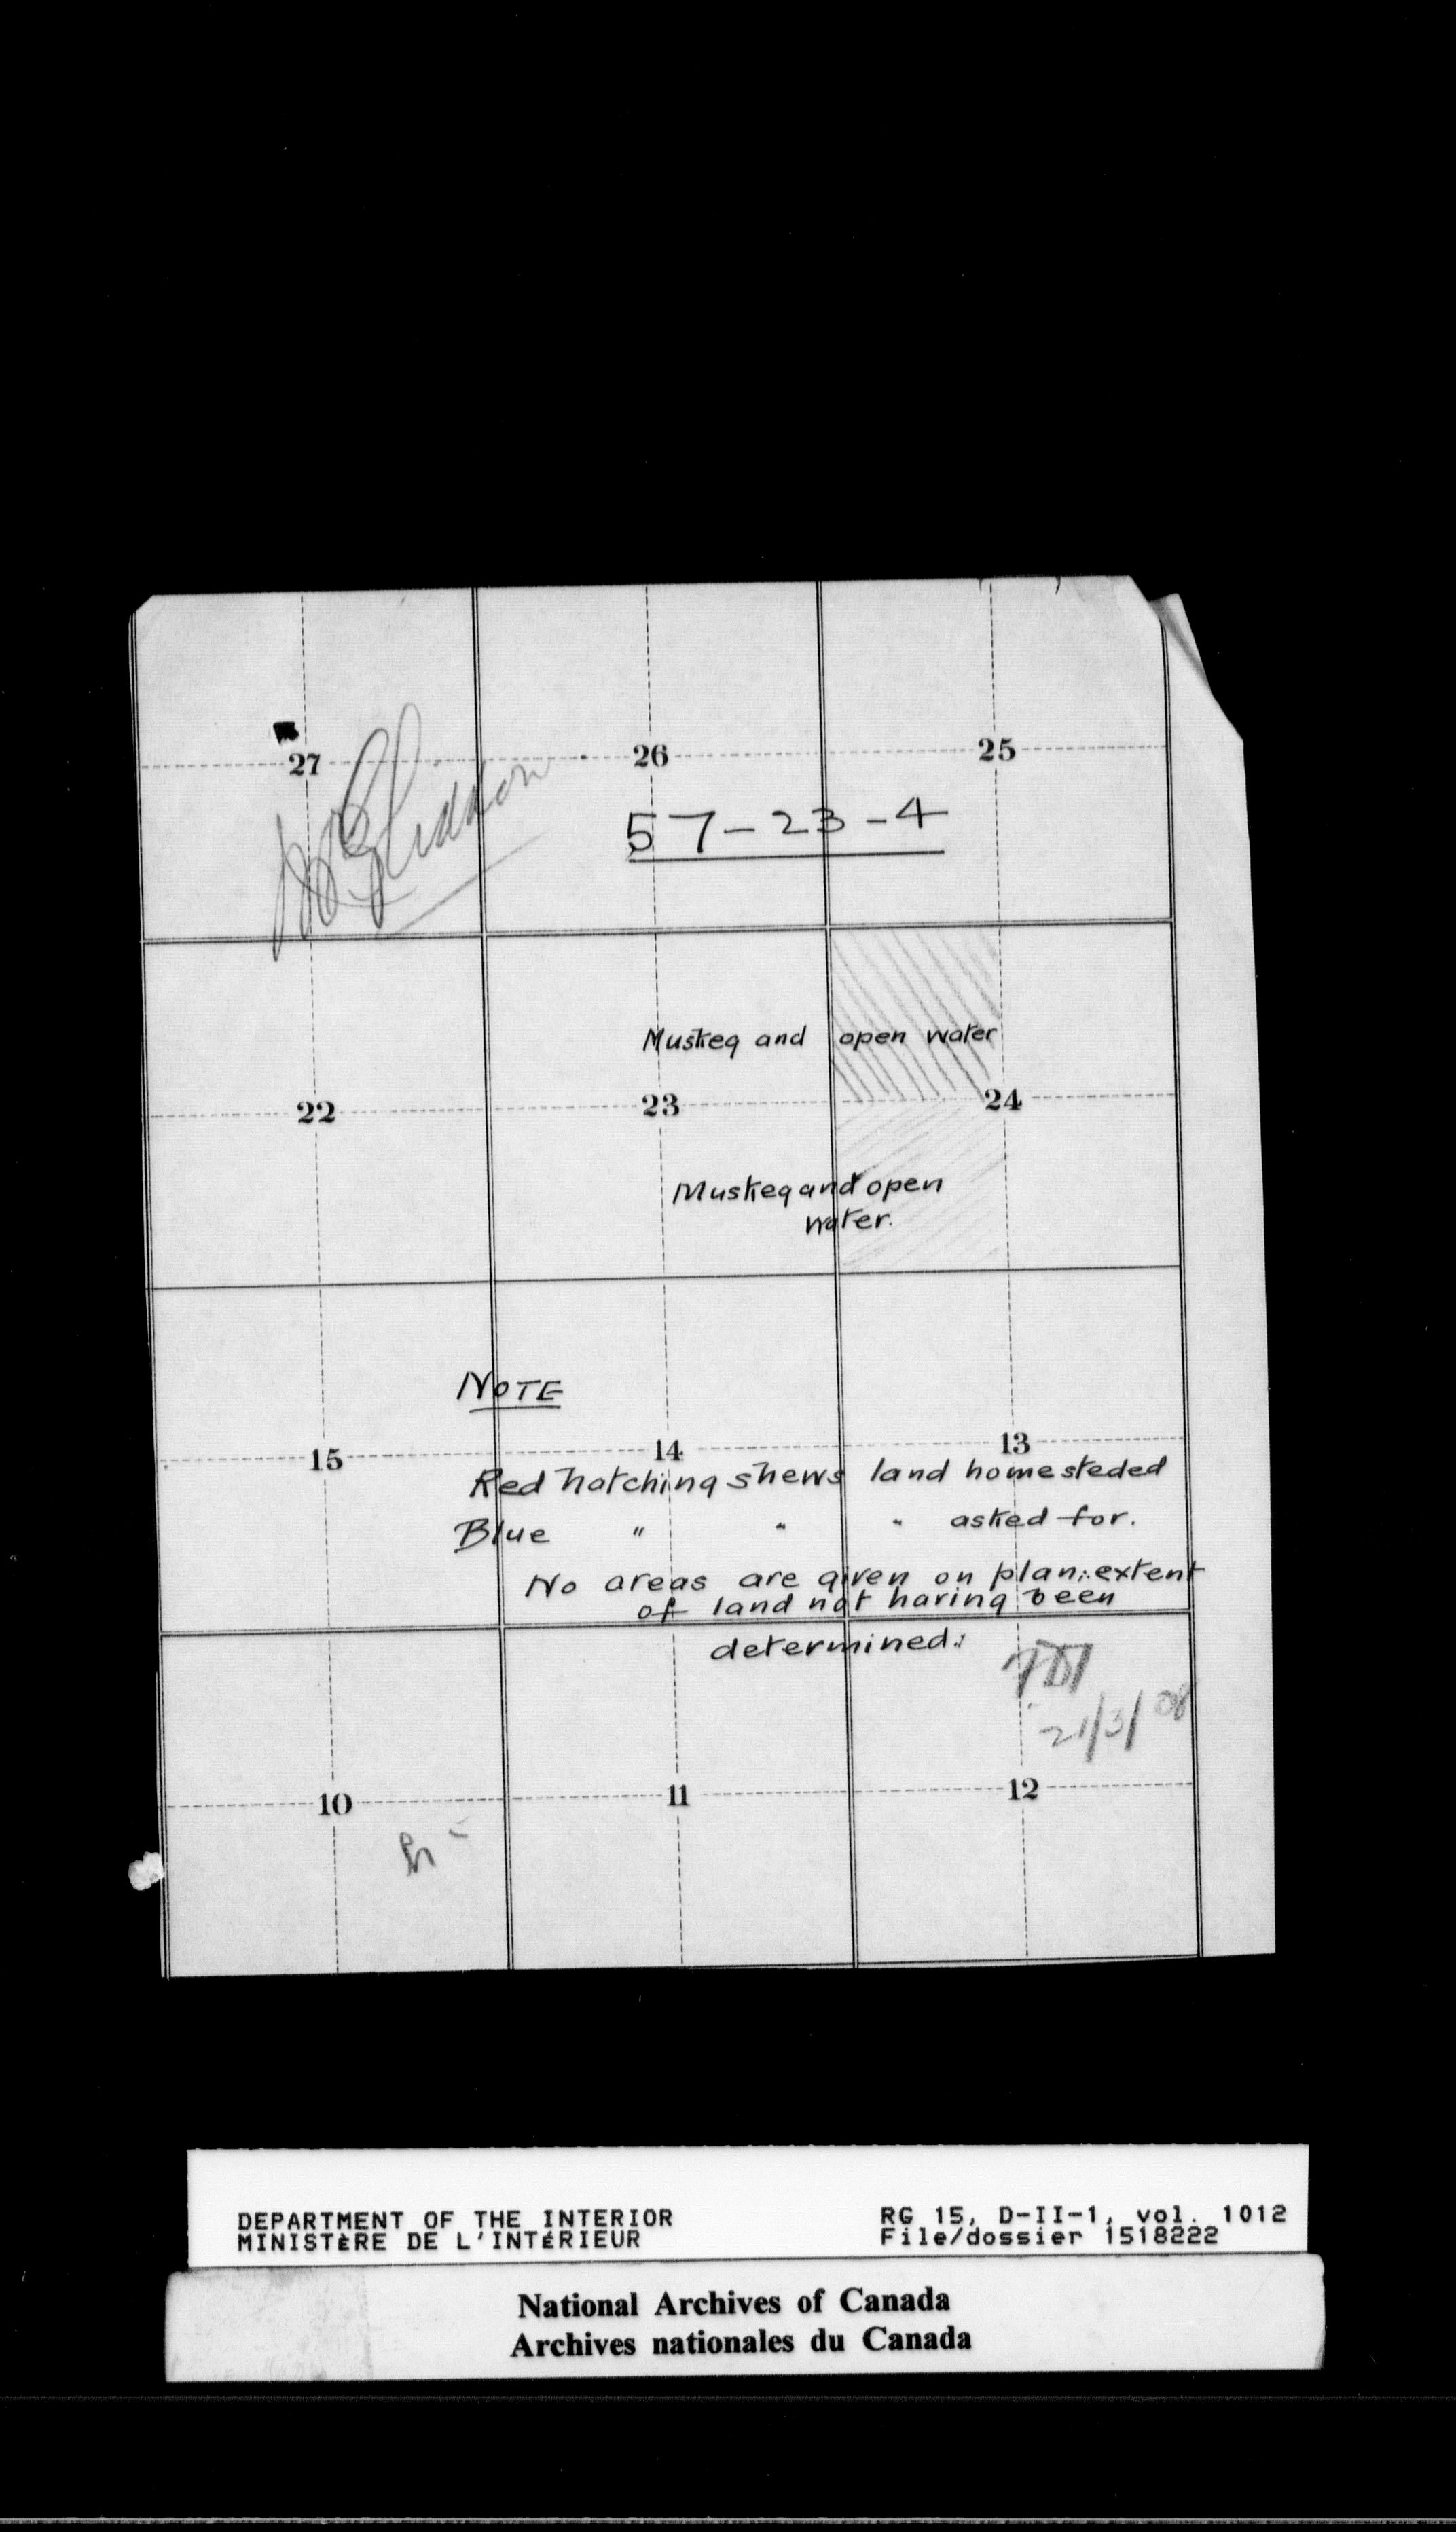 27
26
25
57-23-4
Muskeg and open water
22
23
24
Muskeg and open
water.
NOTE
15
14
13
Red hatching shews land homesteded
Blue " " " asked for.
No areas are given on plan: extent
of land not having been
determined:
21/3/08
10
11
12
DEPARTMENT OF THE INTERIOR
MINISTÈRE DE L'INTÉRIEUR
RG 15, D-II-1, vol. 1012
File/dossier 1518222
National Archives of Canada
Archives nationales du Canada